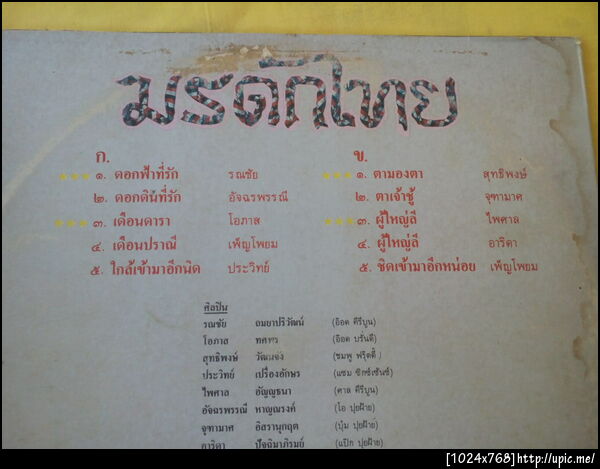 มรดกไทย
ก.
*** ๑. ดอกฟ้าที่รัก รณชัย
๒. ดอกดินที่รัก อัจฉรพรรณี
*** ๓. เดือนดารา โอภาส
๔. เดือนปราณี เพ็ญโพยม
๕. ใกล้เข้ามาอีกนิด ประวิทย์
ข.
*** ๑. ตามองตา สุทธิพงษ์
๒. ตาเจ้าชู้ จุฑามาศ
*** ๓. ผู้ใหญ่ลี ไพศาล
๔. ผู้ใหญ่ลี อาริดา
๕. ชิดเข้ามาอีกหน่อย เพ็ญโพยม
ศิลปิน
รณชัย ถมยาปริวัฒน์ (อ๊อด คีรีบูน)
โอภาส ทศพร (อ๊อด บรั่นดี)
สุทธิพงษ์ วัฒนจัง (ชมพู ฟรุ๊ตตี้)
ประวิทย์ เปรื่องอักษร (แซม ซิกซ์เซ้นซ์)
ไพศาล อัญญธนา (ศาล คีรีบูน)
อัจฉรพรรณี หาญณรงค์ (โอ ปุยฝ้าย)
จุฑามาศ อิสรานุกฤต (ปุ้ม ปุยฝ้าย)
อาริดา ปัจฉิมาภิรมย์ (แป๊ก ปุยฝ้าย)
[1024x768]http://upic.me/